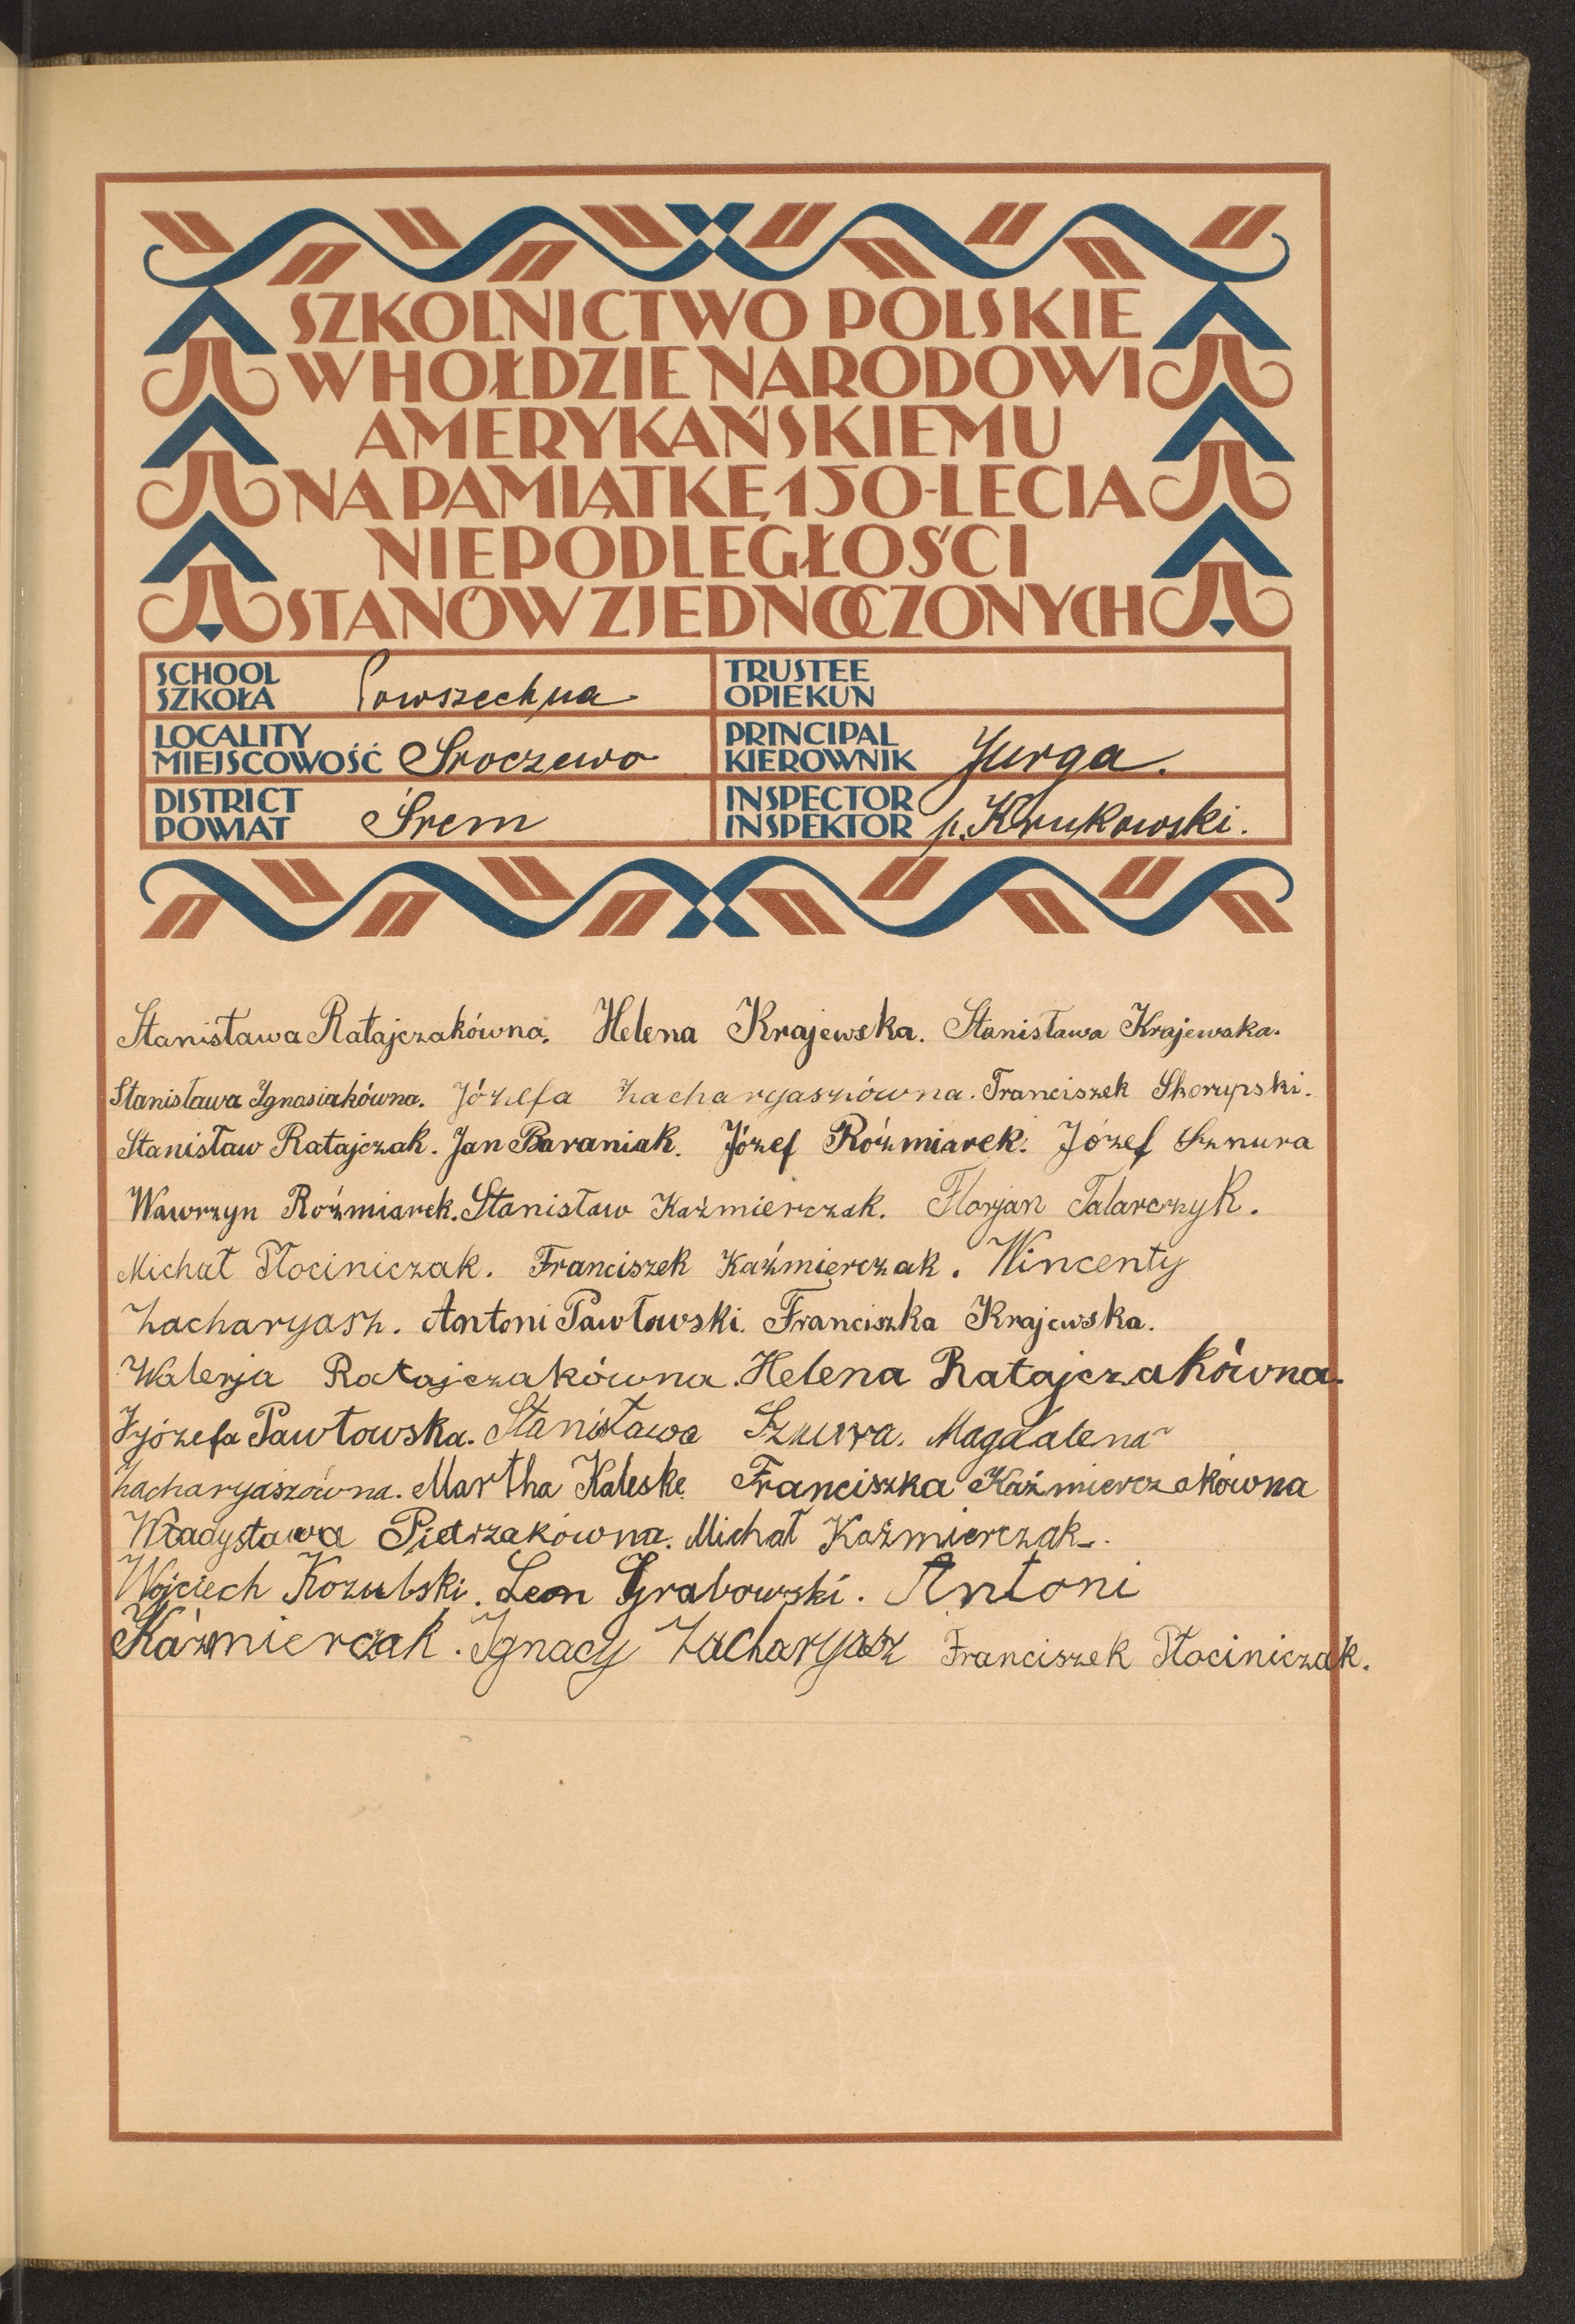 SZKOLNICTWO POLSKIE
W HOŁDZIE NARODOWI
AMERYKAŃSKIEMU
NA PAMIĄTKĘ 150-LECIA
NIEPODLEGŁOŚCI
STANÓW ZJEDNOCZONYCH
SCHOOL
SZKOŁA Powszechna
TRUSTEE
OPIEKUN
LOCALITY
MIEJSCOWOŚĆ Sroczewo
PRINCIPAL
KIEROWNIK Jurga.
DISTRICT
POWIAT Śrem
INSPECTOR
INSPEKTOR p. Krukowski.
Stanisława Ratajczakówna. Helena Krajewska. Stanisława Krajewska.
Stanisława Ignasiakówna. Józefa Zacharyaszówna. Franciszek Skorupski.
Stanisław Ratajczak. Jan Baraniak. Józef Roźmiarek. Józef Sznura
Wawrzyn Roźmiarek. Stanisław Kaźmierczak. Florjan Talarczyk.
Michał Płociniczak. Franciszek Kaźmierczak. Wincenty
Zacharyasz. Antoni Pawłowski. Franciszka Krajewska.
Walerja Ratajczakówna. Helena Ratajczakówna.
Józefa Pawłowska. Stanisława Sznura. Magdalena
Zacharyaszówna. Martha Kaleske Franciszka Kaźmierczakówna
Władysława Pietrzakówna. Michał Kaźmierczak.
Wojciech Kozubski. Leon Grabowski. Antoni
Kaźmierczak. Ignacy Zacharyasz Franciszek Płociniczak.